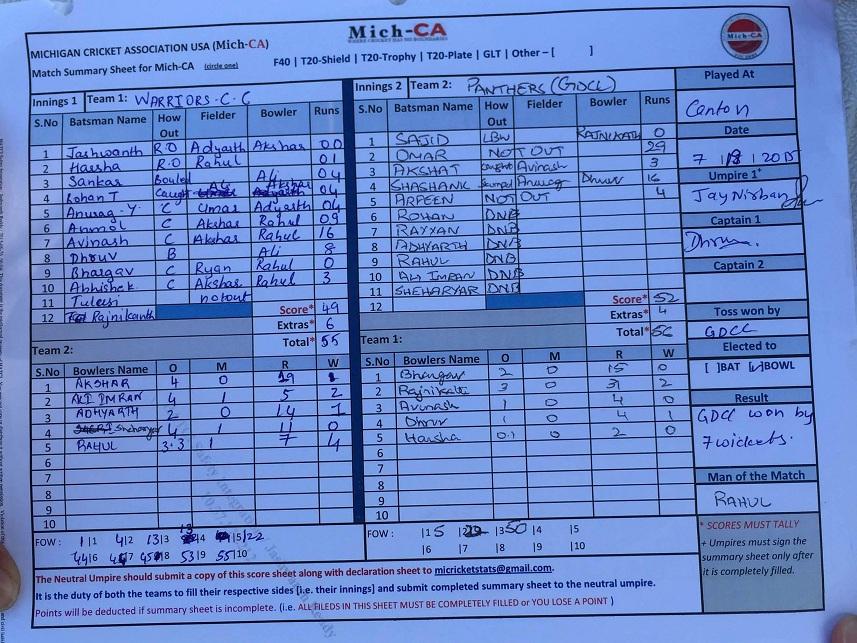 Mich-CA
MICHIGAN CRICKET ASSOCIATION USA (Mich-CA)
Match Summary Sheet for Mich-CA (circle one) F40 | T20-Shield | T20-Trophy | T20-Plate | GLT | Other – [ ]
Mich-CA
Innings 1 Team 1: WARRIORS C.C
S.No Batsman Name How Out Fielder Bowler Runs
1 Jashwanth R.O Adyarth Akshar 00
2 Harsha R.O Rahul 01
3 Sankar Bouled Ali 04
4 Rohan T Caught Ali Akshar 04
5 Anurag.Y. C Umar Adyarth 04
6 Anmol C Akshar Rahul 09
7 Avinash C Akshar Rahul 16
8 Dhruv B Ali 8
9 Bhargav C Ryan Rahul 0
10 Abhishek C Akshar Rahul 3
11 Tulasi notout
12 Rajnikanth
Score* 49
Extras* 6
Total* 55
Team 2:
S.No Bowlers Name O M R W
1 AKSHAR 4 0 19 1
2 ALI IMRAN 4 1 5 2
3 ADHYARTH 2 0 14 1
4 Sheharyar 4 1 11 0
5 RAHUL 3.3 1 7 4
6
7
8
9
10
FOW : 1|1 4|2 13|3 |4 |5 22
44|6 |7 45|8 53|9 55|10
Innings 2 Team 2: PANTHERS (GDCC)
S.No Batsman Name How Out Fielder Bowler Runs
1 SAJID LBW RAJNIKATH 0
2 OMAR NOT OUT 29
3 AKSHAT caught Avinash 3
4 SHASHANK stumped Anurag Dhruv 16
5 ARPEEN NOT OUT 4
6 ROHAN DNB
7 RAYYAN DNB
8 ADHYARTH DNB
9 RAHUL DNB
10 ALI IMRAN DNB
11 SHEHARYAR DNB
12
Score* 52
Extras* 4
Total* 56
Team 1:
S.No Bowlers Name O M R W
1 Bhargav 2 0 15 0
2 Rajnikath 3 0 31 2
3 Avinash 1 0 4 0
4 Dhruv 1 0 4 1
5 Harsha 0.1 0 2 0
6
7
8
9
10
FOW : |1 5 |2 |3 50 |4 |5
|6 |7 |8 |9 |10
Played At
Canton
Date
7 | 18 | 2015
Umpire 1*
Jay Nirban
Captain 1
Dhruv
Captain 2
Toss won by
GDCC
Elected to
[ ]BAT [✓]BOWL
Result
GDCC won by
7 wickets.
Man of the Match
RAHUL
* SCORES MUST TALLY
+ Umpires must sign the
summary sheet only after
it is completely filled.
The Neutral Umpire should submit a copy of this score sheet along with declaration sheet to micricketstats@gmail.com.
It is the duty of both the teams to fill their respective sides [i.e. their innings] and submit completed summary sheet to the neutral umpire.
Points will be deducted if summary sheet is incomplete. (i.e. ALL FILEDS IN THIS SHEET MUST BE COMPLETELY FILLED or YOU LOSE A POINT )